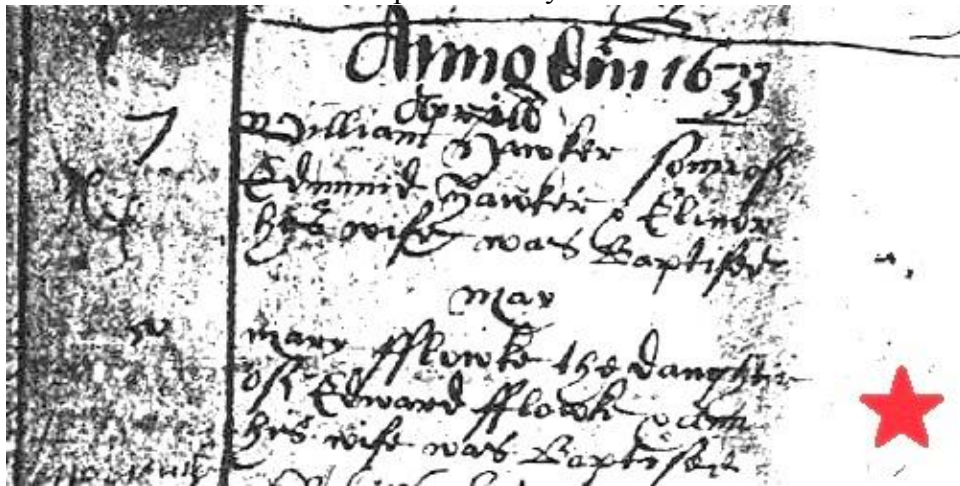 Anno dm̃ 1633
Aprill
7 William Hawker sonn of
Edmund Hawker & Elinor
his wife was Baptised
May
Mary fflowke the daughter
of Edward fflowk & Ann
his wife was Baptised